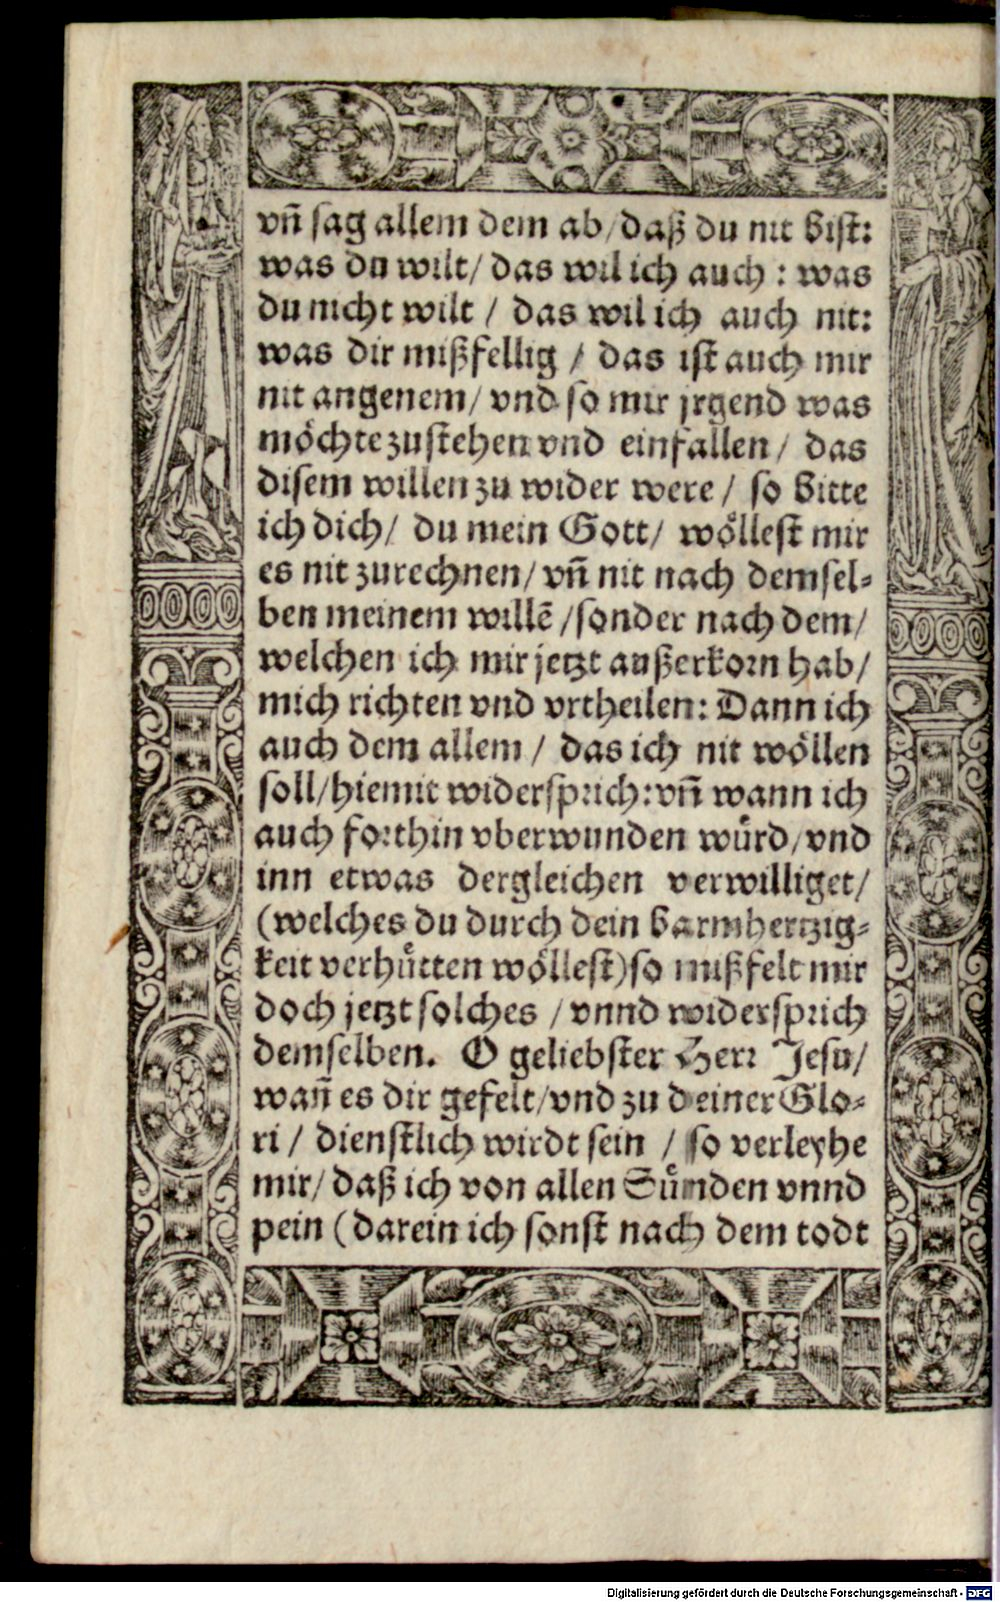 vñ sag allem dem ab/daß du nit bist:
was du wilt/ das wil ich auch : was
du nicht wilt / das wil ich auch nit:
was dir mißfellig / das ist auch mir
nit angenem/ vnd so mir jrgend was
möchte zustehen vnd einfallen/ das
disem willen zu wider were/ so bitte
ich dich/ du mein Gott/ wöllest mir
es nit zurechnen/ vñ nit nach demsel-
ben meinem willẽ /sonder nach dem/
welchen ich mir jetzt außerkorn hab/
mich richten vnd vrtheilen: Dann ich
auch dem allem / das ich nit wöllen
soll/hiemit widersprich:vñ wann ich
auch forthin vberwunden würd/vnd
inn etwas dergleichen verwilliget/
(welches du durch dein barmhertzig-
keit verhütten wöllest)so mißfelt mir
doch jetzt solches / vnnd widersprich
demselben. O geliebster Herr Jesu/
wañ es dir gefelt/vnd zu deiner Glo-
ri / dienstlich wirdt sein / so verleyhe
mir/ daß ich von allen Sünden vnnd
pein (darein ich sonst nach dem todt
Digitalisierung gefördert durch die Deutsche Forschungsgemeinschaft - DFG